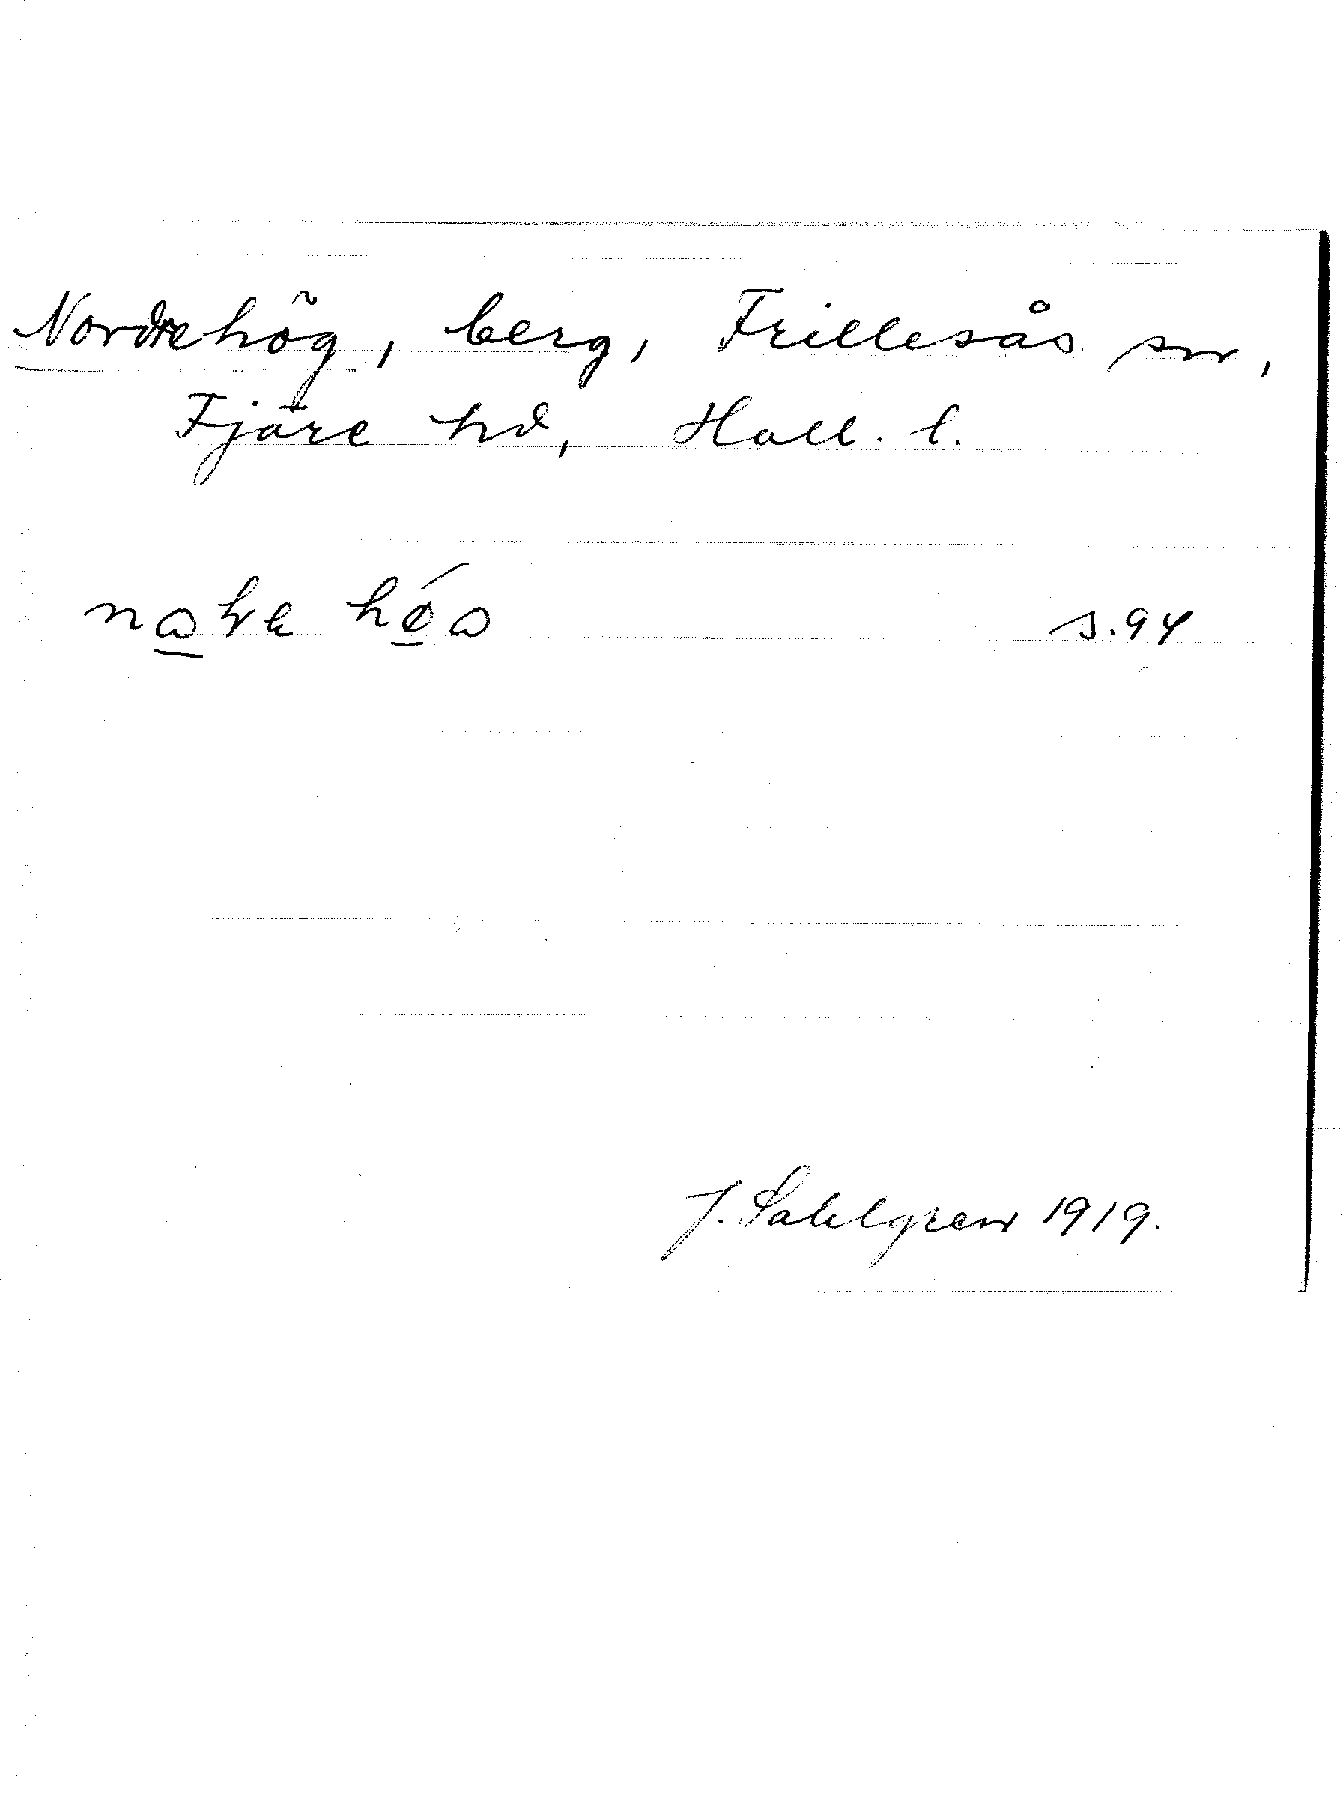 Nordrehög, berg, Frillesås sn,
Fjäre hd, Hall. l.
s. 94
J. Sahlgren 1919.